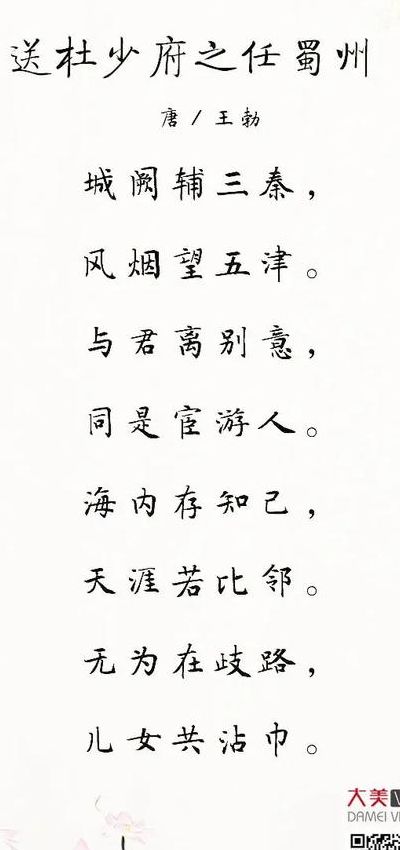 送杜少府之任蜀州
唐/王勃
城阙辅三秦，
风烟望五津。
与君离别意，
同是宦游人。
海内存知己，
天涯若比邻。
无为在歧路，
儿女共沾巾。
大美
DAMEI